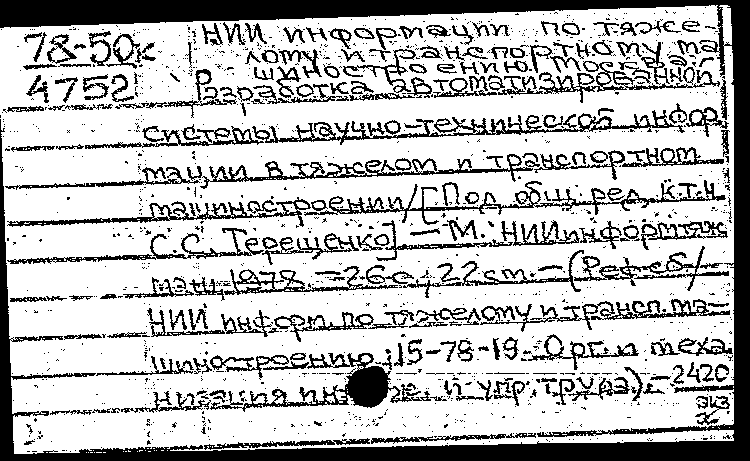 78-50к
4752
НИИ информации по тяже-
лому и транспортному ма-
шиностроению. Москва.
Разработка автоматизированной
системы научно-технической инфор
мации в тяжелом и транспортном
машиностроении/[Под общ. ред. к.т.н
С.С. Терещенко] — М.: НИИинформтяж
маш, 1978 — 26с.; 22 см. — (Реф. сб/
НИИ информ. по тяжелому и трансп. ма-
шиностроению; 15-78-19. Орг. и меха
низация и упр. труда). —
2420
экз